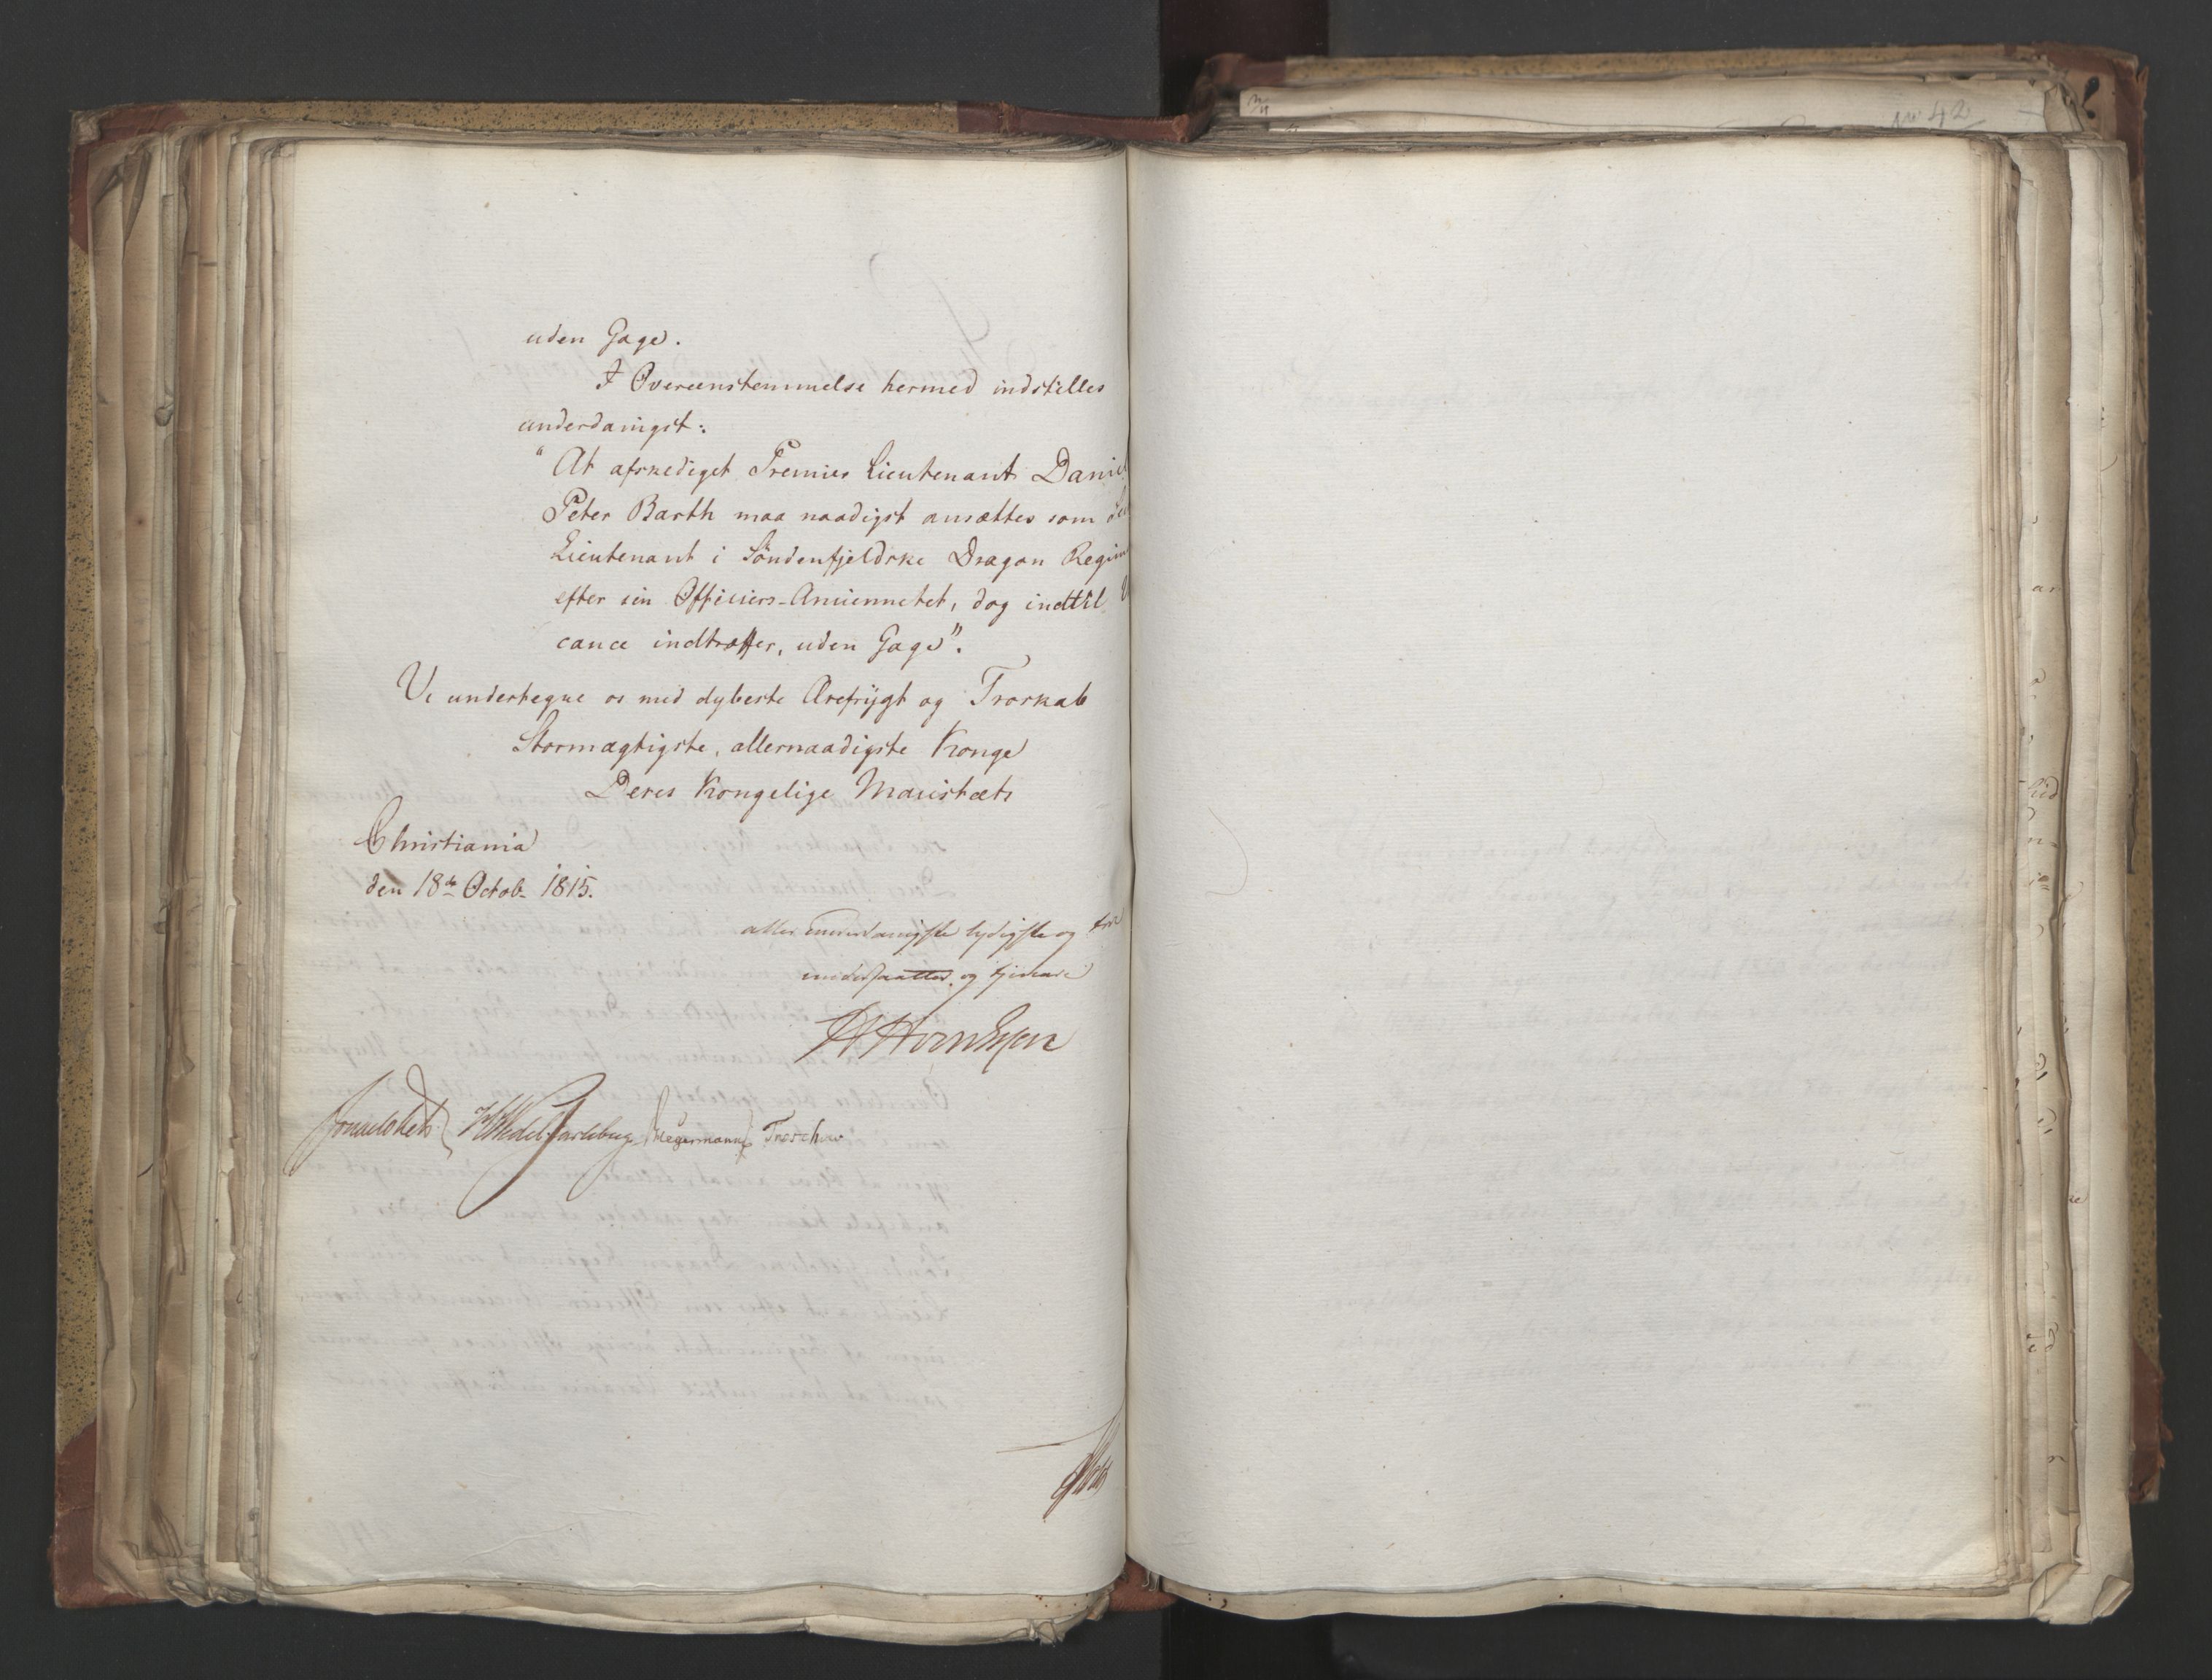 No 42
uden Gage.
I Overeenstemmelse hermed indstilles
underdanigst:
"At afskediget Premier Lieutenant Daniel
Peter Barth maa naadigst ansættes som
Lieutenant i Söndenfjeldske Dragon Regim
efter sin Officiers-Anciennetet, dog indtil V
cance indtræffer, uden Gage".
Vi undertegne os med dybeste Ærefrygt og Troskab
Stormægtigste, allernaadigste Konge
Deres Kongelige Maiestæts
Christiania
den 18de Octob. 1815.
aller underdanigste lydigste og troe
undersaatter og tjenere
Sommerhielm Wedel Jarlsberg Hegermann Treschow